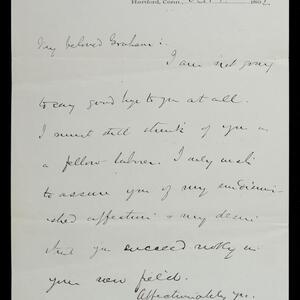 Hartford, Conn.,
My beloved Graham:
I am not going
to say good bye to you at all.
I must still think of you as
a fellow laborer. I only wish
to assure you of my undimin-
ished affection & my desire
that you succeed nobly in
your new field.
Affectionately yrs.